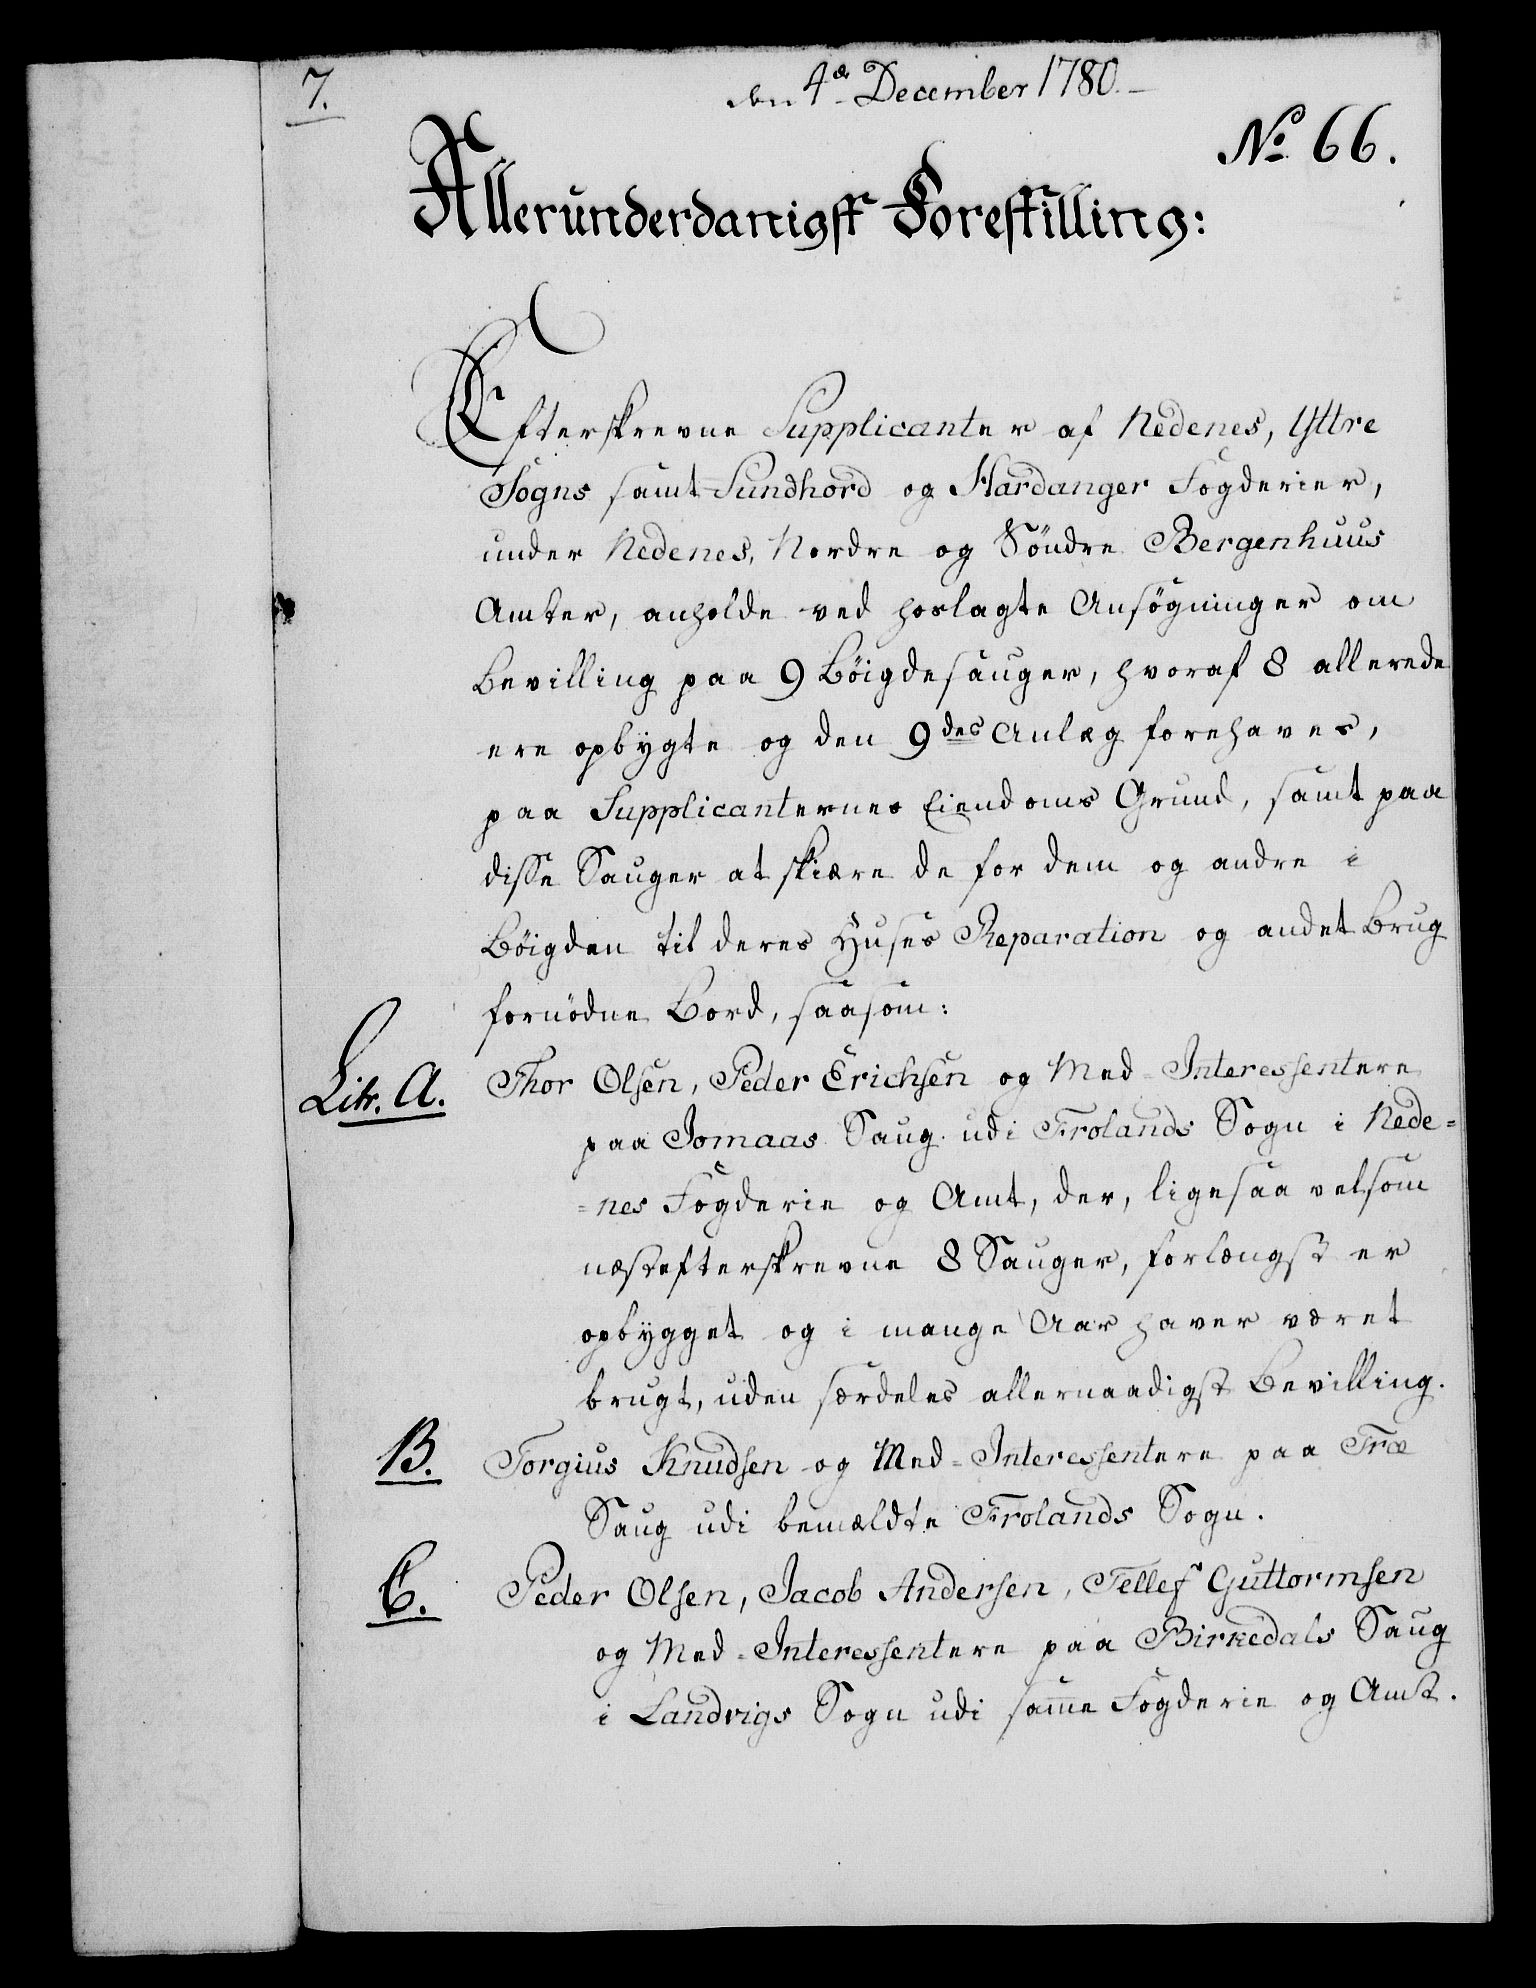 7.
den 4de December 1780.
No. 66.
Allerunderdanigst Forestilling:
Efterskrevne Supplicanter af Nedenes, Yttre
Sogns samt Sundhord og Hardanger Fogderier,
under Nedenes, Nordre og Söndre Bergenhuus
Amter, anholde ved hoslagte Ansögninger om
Bevilling paa 9 Böigdesauger, hvoraf 8 allerede
ere opbygte og den 9des Anlæg forehaves,
paa Supplicanternes Eiendoms Grund, samt paa
disse Sauger at skiære de for dem og andre i
Böigden til deres Huses Reparation og andet Brug
fornödne Bord, saasom:
Litr. A. Thor Olsen, Peder Erichsen og Med-Interessentere
paa Jomaas Saug udi Frolands Sogn i Nede=
=nes Fogderie og Amt, der, ligesaavelsom
næstefterskrevne 8 Sauger, forlængst er
opbygget og i mange Aar haver været
brugt, uden særdeles allernaadigst Bevilling.
B. Torgius Knudsen og Med-Interessentere paa Træ
Saug udi bemældte Frolands Sogn.
C. Peder Olsen, Jacob Andersen, Tellef Guttormsen
og Med-Interessentere paa Birkedals Saug
i Landvigs Sogn udi samme Fogderie og Amt.